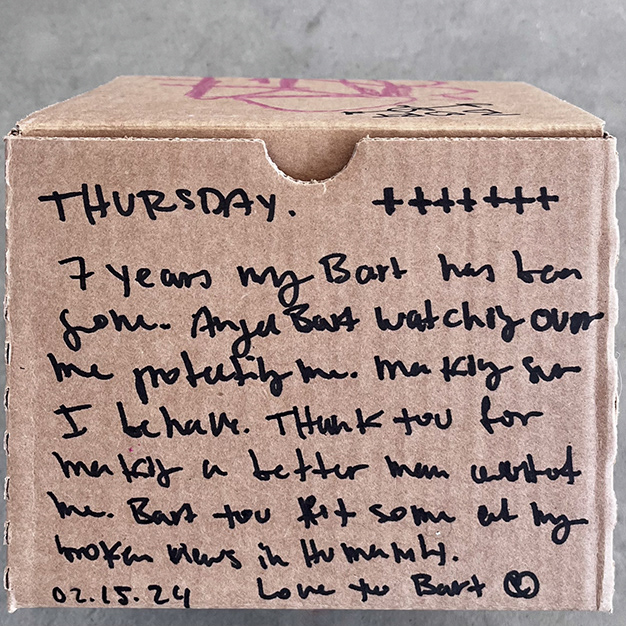 THURSDAY. +++++++
7 years my Bart has been
gone. Angel Bart watching over
me protecting me. Making sure
I behave. Thank you for
making a better man out of
me. Bart you fixed some of my
broken views in Humanity.
02.15.24 Love you Bart